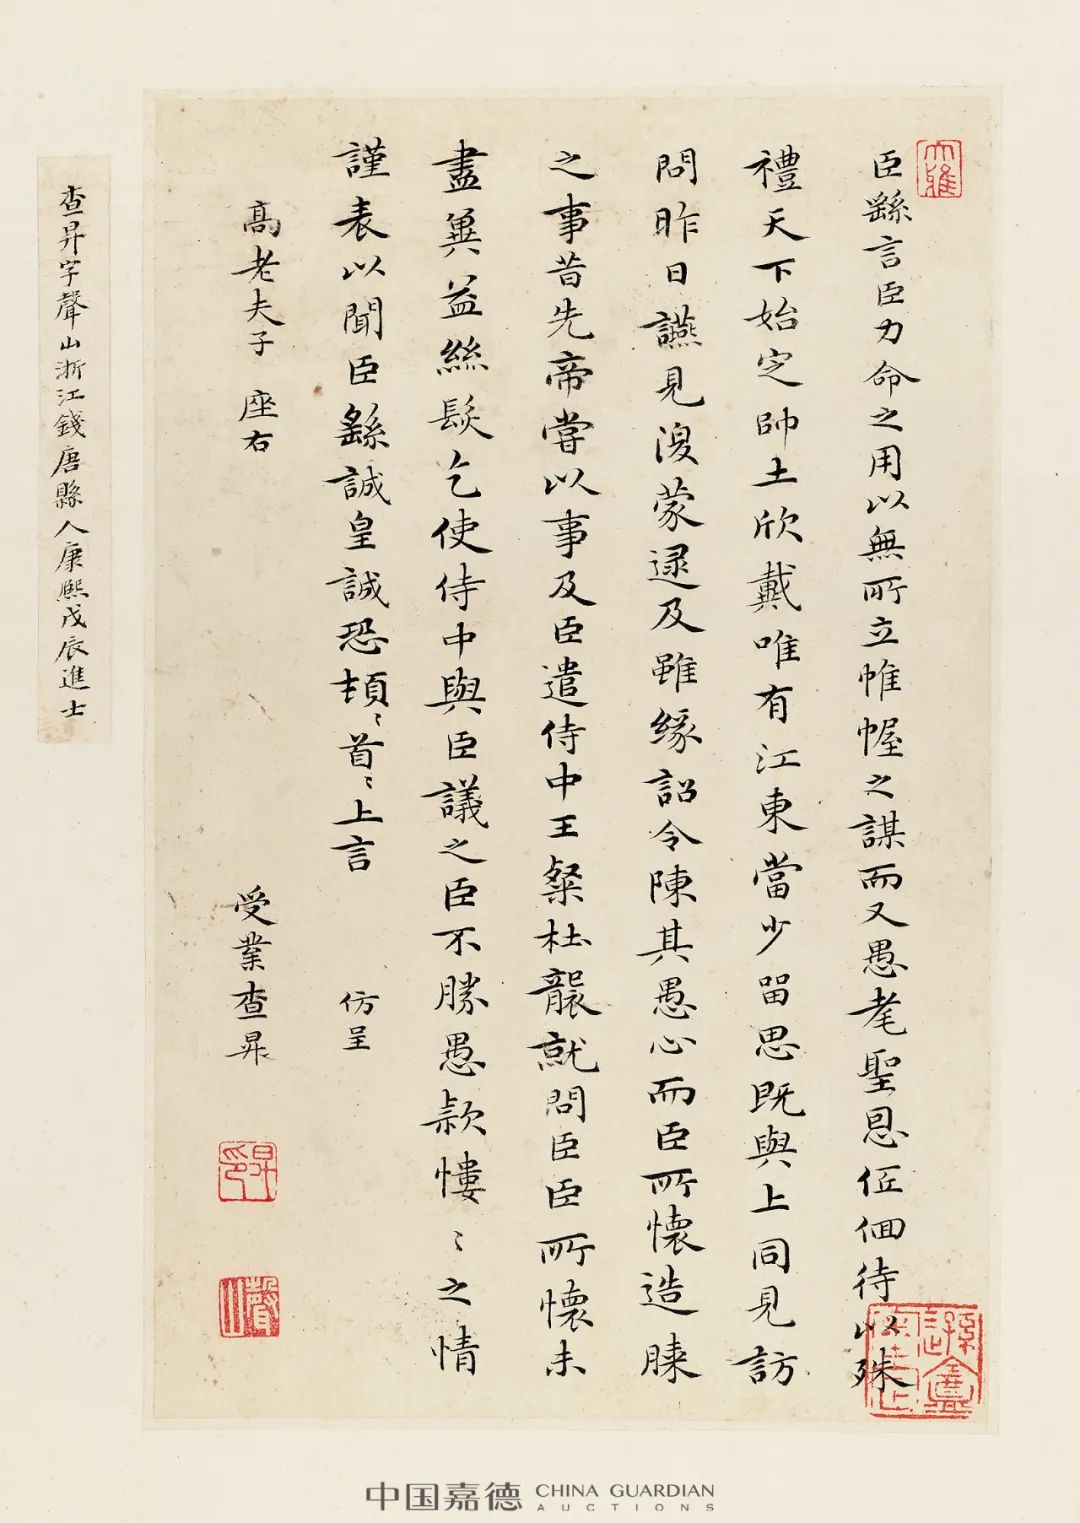 臣繇言臣力命之用以無所立帷幄之謀而又愚耄聖恩低佪待以殊
禮天下始定帥土欣戴唯有江東當少留思既與上同見訪
問昨日讌見復蒙逯及雖緣詔令陳其愚心而臣所懷造膝
之事昔先帝嘗以事及臣遣侍中王粲杜襲就問臣臣所懷未
盡冀益絲髮乞使侍中與臣議之臣不勝愚款慺〻之情
謹表以聞臣繇誠皇誠恐頓〻首〻上言
仿呈
高老夫子 座右
受業查昇
昇印
聲山
大雅
查昇字聲山浙江錢唐縣人康熙戊辰進士
中国嘉德 CHINA GUARDIAN
AUCTIONS